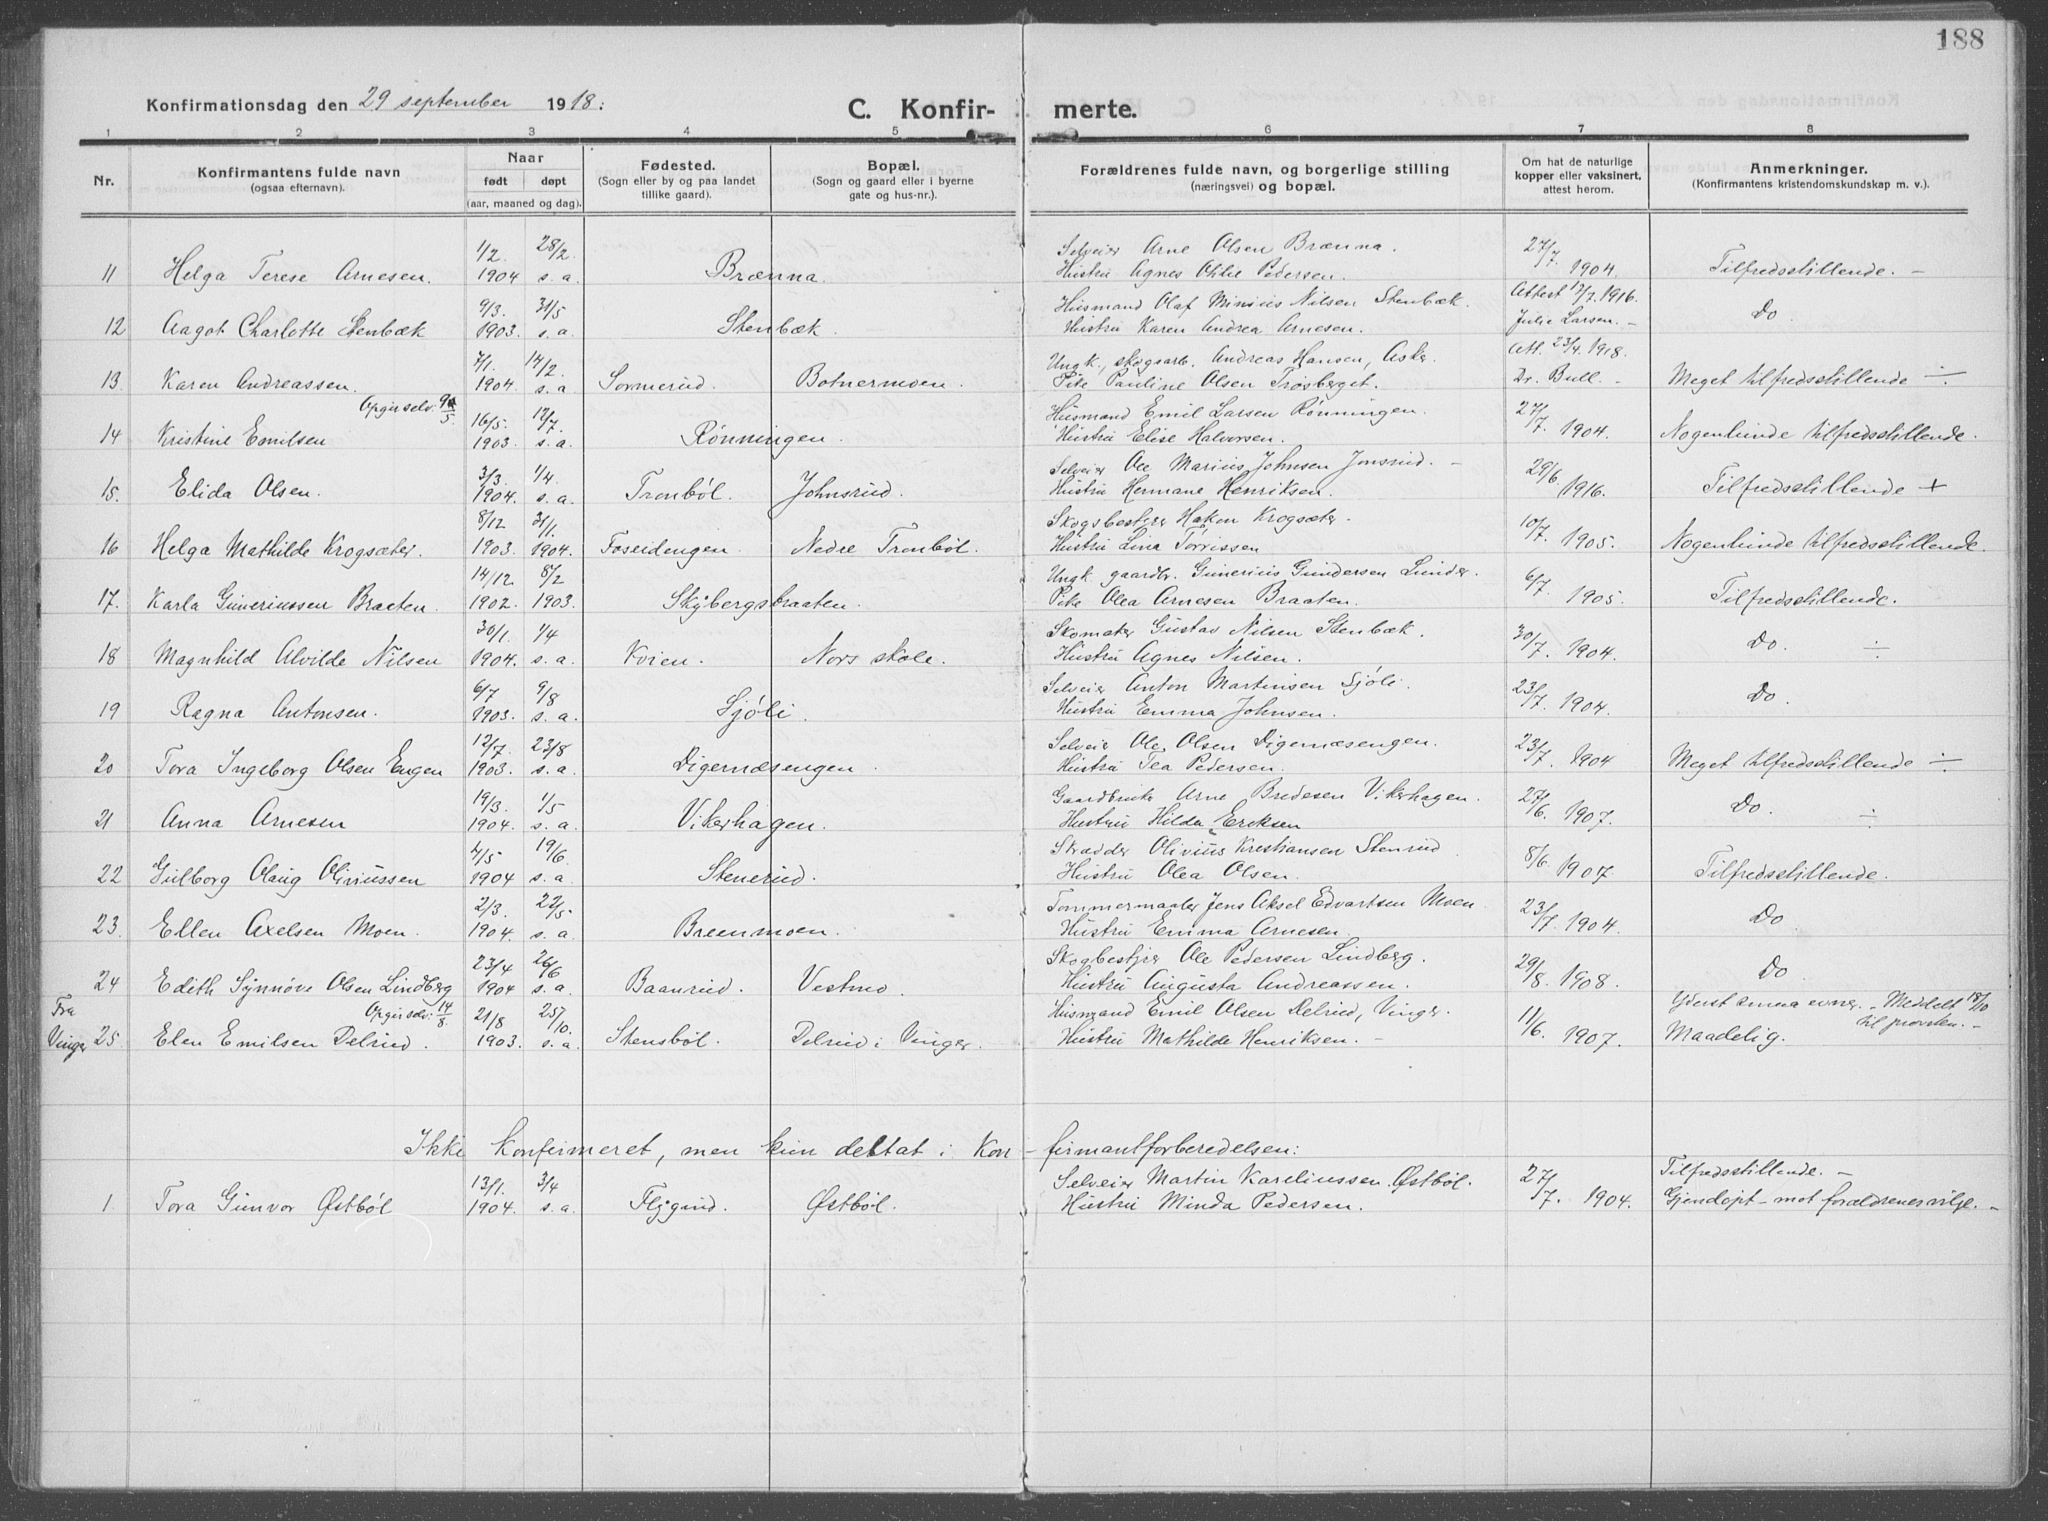 188
Konfirmationsdag den 29 september 1918:
C. Konfirmerte.
1 2 3 4 5 6 7 8
Nr. Konfirmantens fulde navn (ogsaa efternavn). Naar født døpt (aar, maaned og dag). Fødested. (Sogn eller by og paa landet tillike gaard). Bopæl. (Sogn og gaard eller i byerne gate og hus-nr.). Forældrenes fulde navn, og borgerlige stilling (næringsvei) og bopæl. Om hat de naturlige kopper eller vaksinert, attest herom. Anmerkninger. (Konfirmantens kristendomskundskap m. v.).
1/2. 28/2. Selveier Arne Olsen Brænna. 27/7.
11 Helga Terese Arnesen. 1904 s. a. Brænna. Hustru Agnes Othie Pedersen. 1904. Tilfredsstillende. –
9/3. 31/5 Husmand Olaf Minius Nilsen Stenbæk. Attest 12/7 1916.
12 Aagot Charlotte Stenbæk 1903. s. a. Stenbæk. Hustru Karen Andrea Arnesen. Julie Larsen. – Do
7/1. 14/2. Ungk., skogsarb. Andreas Hansen, Asker. Att. 23/4. 1918.
13. Karen Andreassen. 1904. s. a. Sormerud. Botnermoen. Pike Pauline Olsen Trøsberget. Dr. Bull. – Meget tilfredsstillende ÷
Opgir selv: 9/5. 16/5. 12/7. Husmand Emil Larsen Rønningen. 27/7.
14 Kristine Emilsen 1903. s. a. Rønningen. Hustru Elise Halvorsen. 1904. Nogenlunde tilfredsstillende.
3/3. 1/4 Selveier Ole Marius Johnsen Jonsrud. –
15. Elida Olsen. 1904. s. a. Tronbøl. Johnsrud. Hustru Hermane Henriksen. 29/6 1916. Tilfredsstillende +
8/12 31/1. Skogsbestyrer Hakon Krogsæter. 10/7.
16 Helga Mathilde Krogsæter. 1903. 1904. Foseidengen. Nedre Tronbøl. Hustru Lina Torrissen 1905. Nogenlunde tilfredsstillende.
14/12. 8/2 Ungk. gaardbr. Gunerius Gundersen Lunder. 6/7.
17. Karla Guneriussen Braaten. 1902. 1903. Skybergsbraaten. Pike Olea Arnesen Braaten. 1905. Tilfredsstillende.
30/1. 1/4 Skomaker Gustav Nilsen Stenbæk. 30/7.
18 Magnhild Alvilde Nilsen 1904. s. a. Kvien. Nors skole. Hustru Agnes Nilsen. 1904. Do. ÷
6/7 9/8 Selveier Anton Martinsen Sjøli. 23/7.
19 Ragna Antonsen. 1903. s. a. Sjøli. Hustru Emma Johnsen. 1904. Do.
12/7. 23/8 Selveier Ole Olsen Digernæsengen. 23/7.
20 Tora Ingeborg Olsen Engen 1903. s. a. Digernæsengen. Hustru Tea Pedersen. 1904 Meget tilfredsstillende ÷
19/3. 1/5 Gaardbruker Arne Bredesen Vikerhagen. 27/6.
21 Anna Arnesen 1904. s. a. Vikerhagen. Hustru Hilda Eriksen 1907. Do. ÷
4/5 19/6. Skrædder Olivius Kristiansen Stenrud 8/6.
22 Gulborg Olaug Oliviussen 1904 s. a. Stenerud. Hustru Olea Olsen. 1907. Tilfredsstillende.
2/3. 22/5 Tømmermaaler Jens Aksel Edvartsen Moen 23/7.
23. Ellen Axelsen Moen. 1904. s. a. Breenmoen. Hustru Emma Arnesen. 1904. Do
23/4 26/6 Skogbestyrer Ole Pedersen Lindberg. 29/8.
24 Edith Synnøve Olsen Lindberg 1904 s. a. Baanrud. Vestmo. Hustru Augusta Andreassen. 1908. Do
Fra Opgir selv: 14/8. 21/8 25/10. Husmand Emil Olsen Delrud, Vinger. 11/6. Yderst smaa evner. – Meddelt 18/10
Vinger 25. Elen Emilsen Delrud. 1903. s. a. Stensbøl. Delrud i Vinger. Hustru Mathilde Henriksen. – 1907. Maadelig. til provsten. –
Ikke konfirmeret, men kun deltat i Konfirmantforberedelsen:
13/1. 3/4 Selveier Martin Kareliussen Østbøl. 27/7. Tilfredsstillende. –
1. Tora Gunvor Østbøl 1904. s. a. Flygind. Østbøl. Hustru Minda Pedersen. 1904. Gjendøpt – mot forældrenes vilje. –